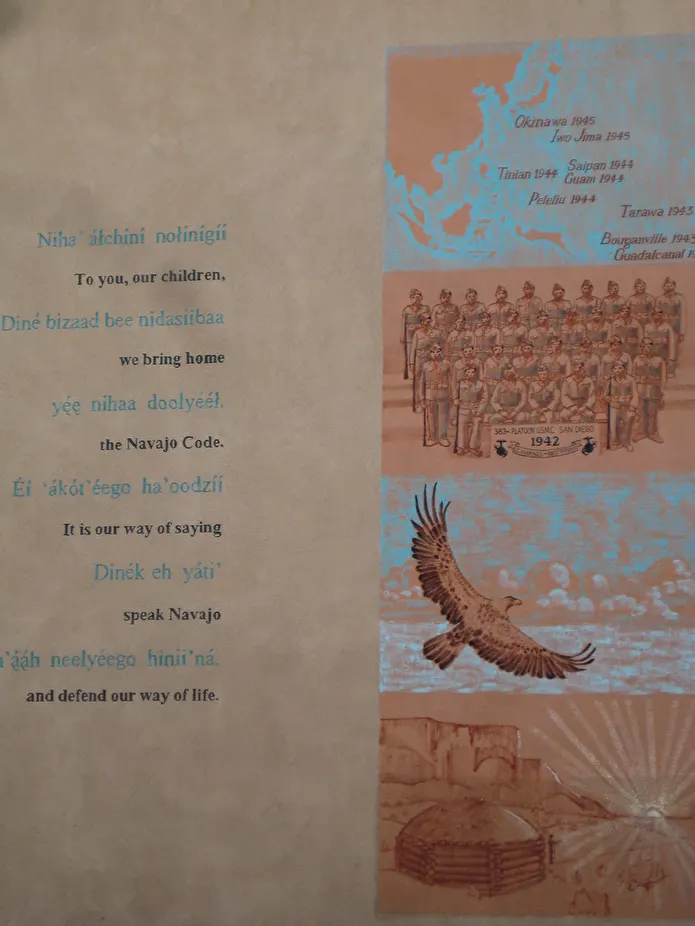 Niha' áłchíní nołínígíí
To you, our children,
Diné bizaad bee nidasiibaa
we bring home
yę́ę nihaa doolyééł.
the Navajo Code.
Éí 'ákót'éego ha'oodzíí
It is our way of saying
Dinék eh yáti'
speak Navajo
neelyéego hinii'ná.
and defend our way of life.
Okinawa 1945
Iwo Jima 1945
Saipan 1944
Tinian 1944
Guam 1944
Peleliu 1944
Tarawa 1943
Bouganville 1943
Guadalcanal
382nd PLATOON U.S.M.C. SAN DIEGO
1942